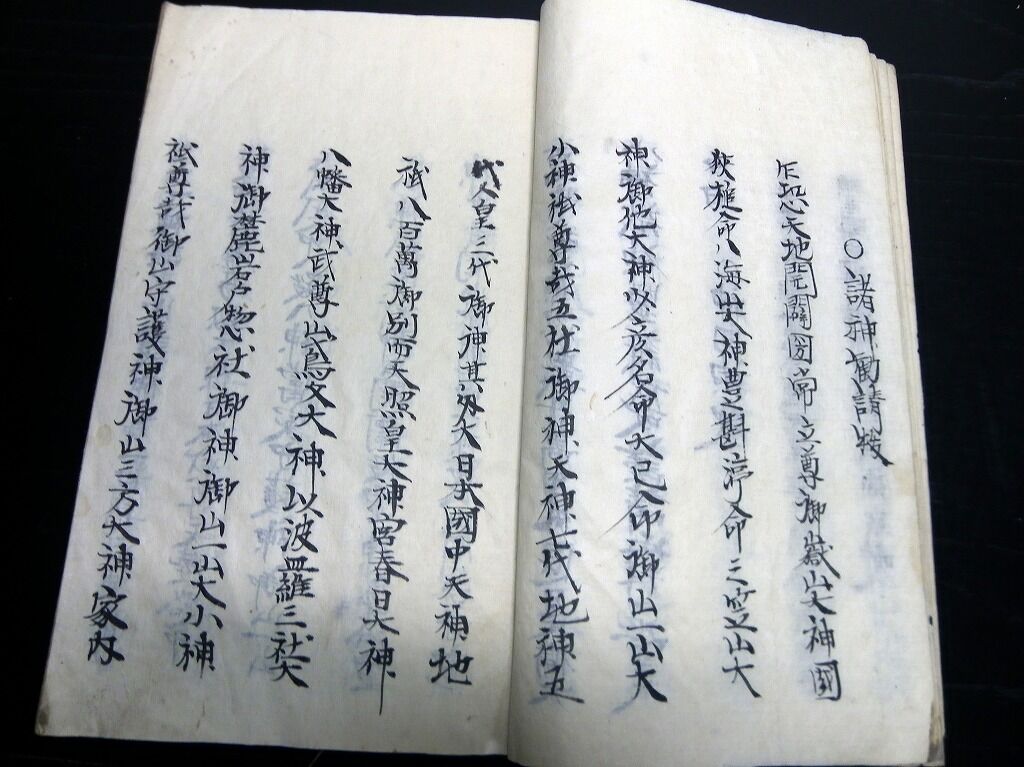 ○諸神勧請祓
乍恐天地開闢国常立尊御嶽山大神國
狭槌命八海山大神豊斟渟命三笠山大
神御他大神少彦名命大已命御山一山大
小神祇尊哉五社御神天神七代地神五
代人皇三代御神其外大日本國中天神地
祇八百萬御別而天照皇大神宮春日大神
八幡大神武尊山大神以波羅三社大
神御岩戸惣社御神御山一山大小神
祇尊哉御山守護神御山三方大神家内